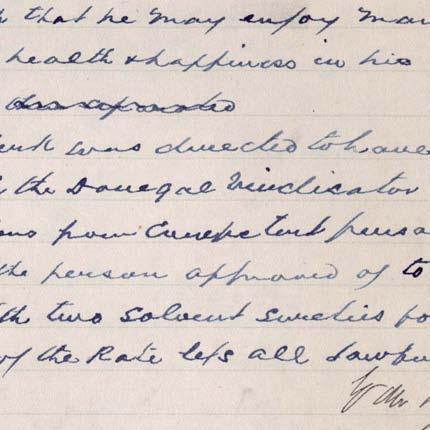 that he may enjoy
health & happiness in his
was directed to have
the Donegal Vindicator
from Competent
the person approved of to
two solvent sureties
of the Rate less all